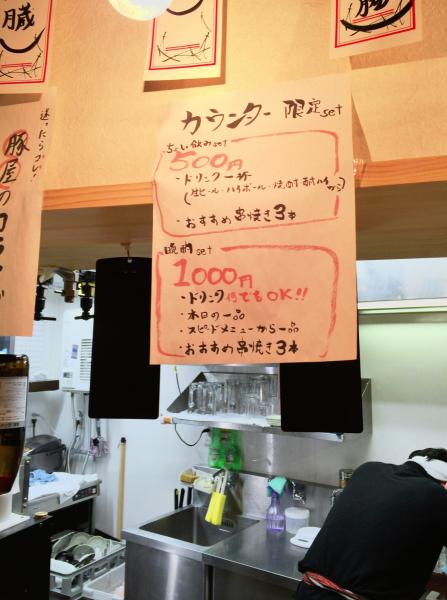 臓
迷ったらコレ!
豚屋の
カウンター 限定set
ちょい飲みset
500円
・ドリンク一杯
(生ビール・ハイボール・焼酎 酎ハイから)
・おすすめ串焼き3本
晩酌set
1000円
・ドリンク何でもOK!!
・本日の一品
・スピードメニューから一品
・おすすめ串焼き3本